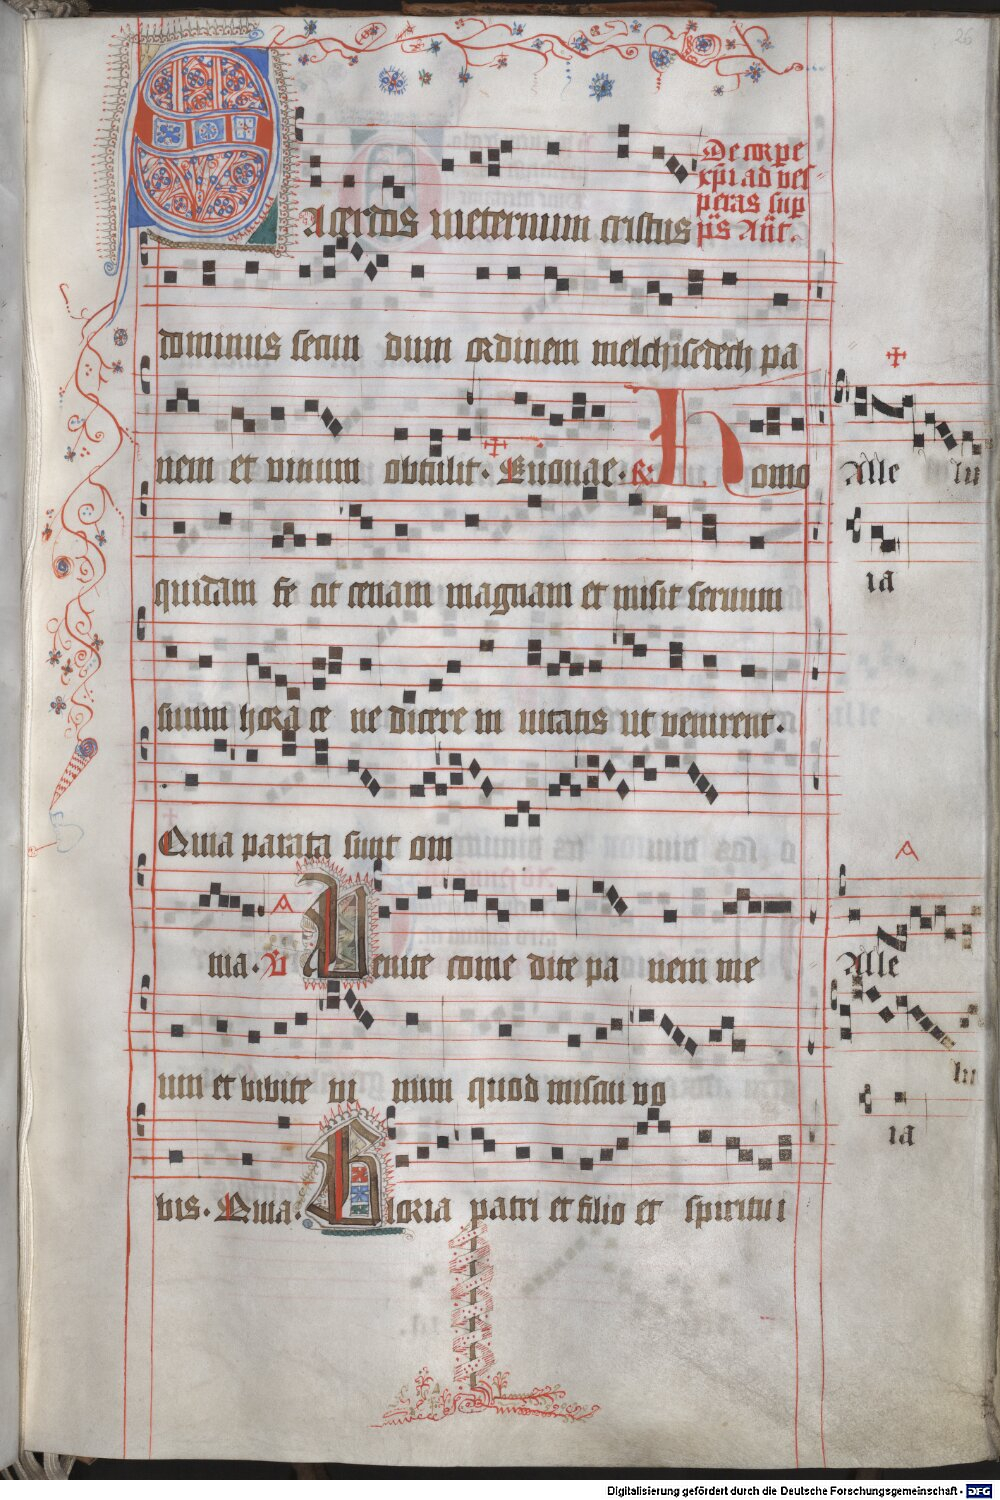 26
SAcerdos in eternum cristus
De corpe
xp̄i ad ves
peras sup
p̄s Ant̄.
dominus secun dum ordinem melchisedech pa
nem et vinum obtulit. Euouae. R Homo
quidam fe cit cenam magnam et misit seruum
suum hora ce ne dicere in uitatis ut venirent.
Quia parata sunt om
nia. V Venite come dite pa nem me
um et bibite vi num quod miscui vo
bis. Quia. Gloria patri et filio et spiritui
Alle lu
ia
A
Alle
lu
ia
Digitalisierung gefördert durch die Deutsche Forschungsgemeinschaft - DFG